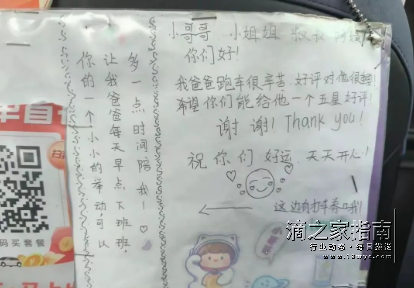 小哥哥 小姐姐 叔叔
你们好!
我爸爸跑车很辛苦,好评对他很
希望你们能给他一个五星好评!
谢谢!Thank you!
祝你们 好运 天天开心!
你的一个小小的举动,可以
让我爸爸每天早点下班
多一点时间陪我!
码买套餐
滴之家指南